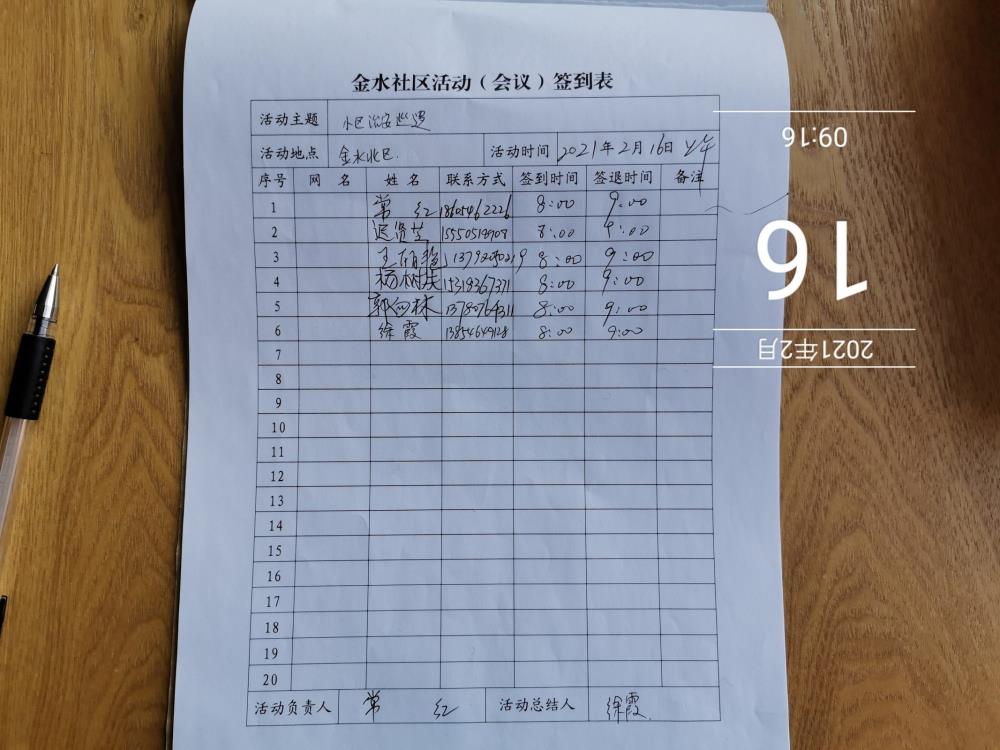 金水社区活动（会议）签到表
活动主题 小区治安巡逻
活动地点 金水北区. 活动时间 2021年2月16日 上午
序号 网 名 姓 名 联系方式 签到时间 签退时间 备注
1 常 红 18605462226 8:00 9:00
2 15550518908 8:00 9:00
3 8:00 9:00
4 杨树庆 15319367371 8:00 9:00
5 8:00 9:00
6 徐霞 13854649128 8:00 9:00
7
8
9
10
11
12
13
14
15
16
17
18
19
20
活动负责人 常 红 活动总结人 徐霞.
09:16
16
2021年2月